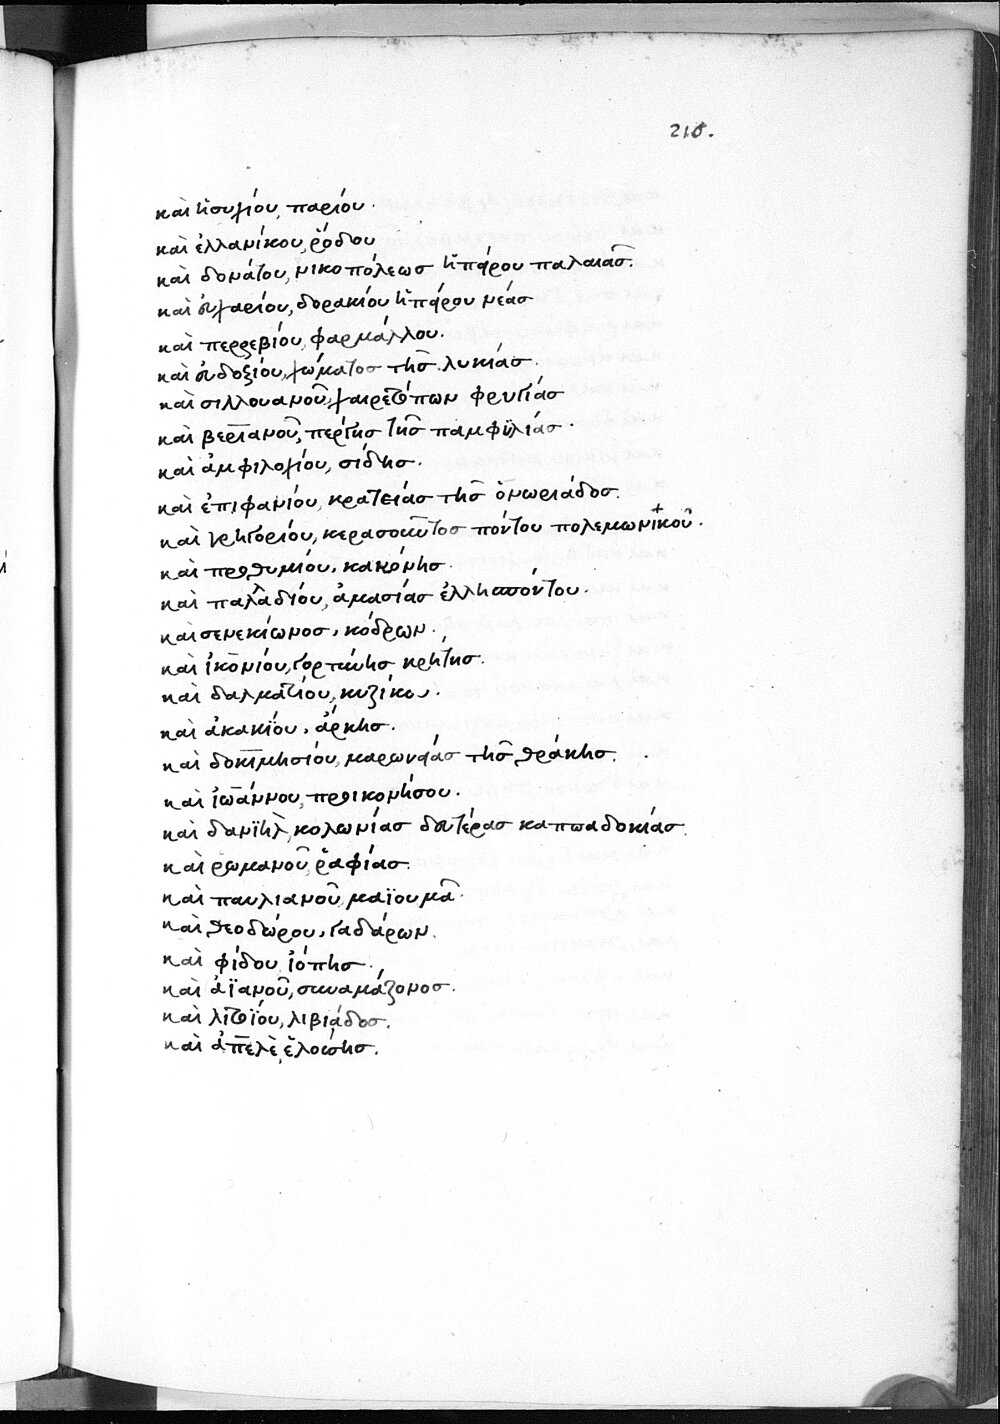 218.
καὶ ἡσυχίου, παρίου.
καὶ ἑλλανίκου, ῥόδου
καὶ δονάτου, νικοπόλεως ἠπείρου παλαιᾶς.
καὶ εὐχαρίου, δορακίου ἠπείρου νέας
καὶ περρεβίου, φαρμάλλου.
καὶ εὐδοξίου, χώματος τῆς λυκίας.
καὶ σιλλουανοῦ, χαιρετόπων φρυγίας
καὶ βεριανοῦ, πέργης τῆς παμφϋλίας.
καὶ ἀμφιλοχίου, σίδης.
καὶ ἐπιφανίου, κρατείας τῆς ὁνωριάδος.
καὶ γρηγορίου, κερασοῦντος πόντου πολεμωνικοῦ.
καὶ προθυμίου, κακόνης.
καὶ παλαδίου, ἀμασίας ἑλλησπόντου.
καὶ σενεκίωνος, κόδρων.
καὶ ἰκονίου, γορτύνης κρήτης.
καὶ δαλματίου, κυζίκου.
καὶ ἀκακίου, ἄρκης.
καὶ δοκιμησίου, μαρωνείας τῆς θράκης.
καὶ ἰωάννου, προικονήσου.
καὶ δανιὴλ, κολωνίας δευτέρας καππαδοκίας.
καὶ ρωμανοῦ, ῥαφίας.
καὶ παυλιανοῦ, μαϊουμᾶ.
καὶ θεοδώρου, γαδάρων.
καὶ φίδου, ἰόπης.
καὶ ἀϊανοῦ, συναμάζονος.
καὶ λιτοΐου, λιβιάδος.
καὶ ἀπελὲ, ἐλούσης.